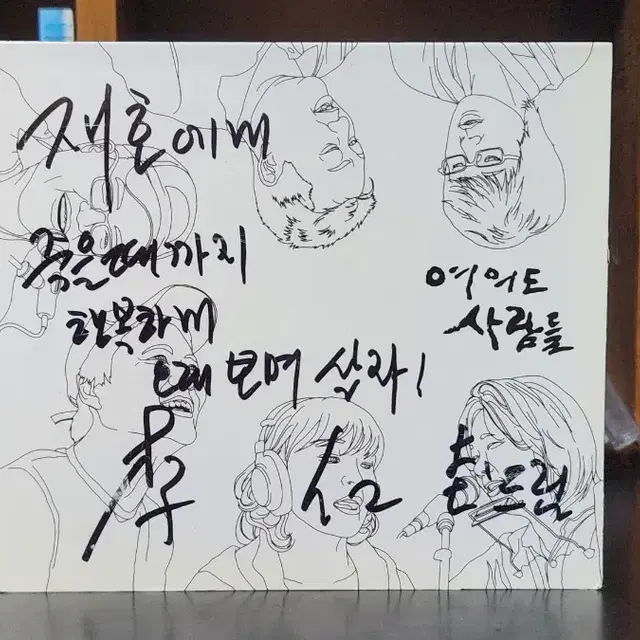 재호에게
죽을때까지
행복하게
오래 보며 살자!
여의도
사람들
李 드림